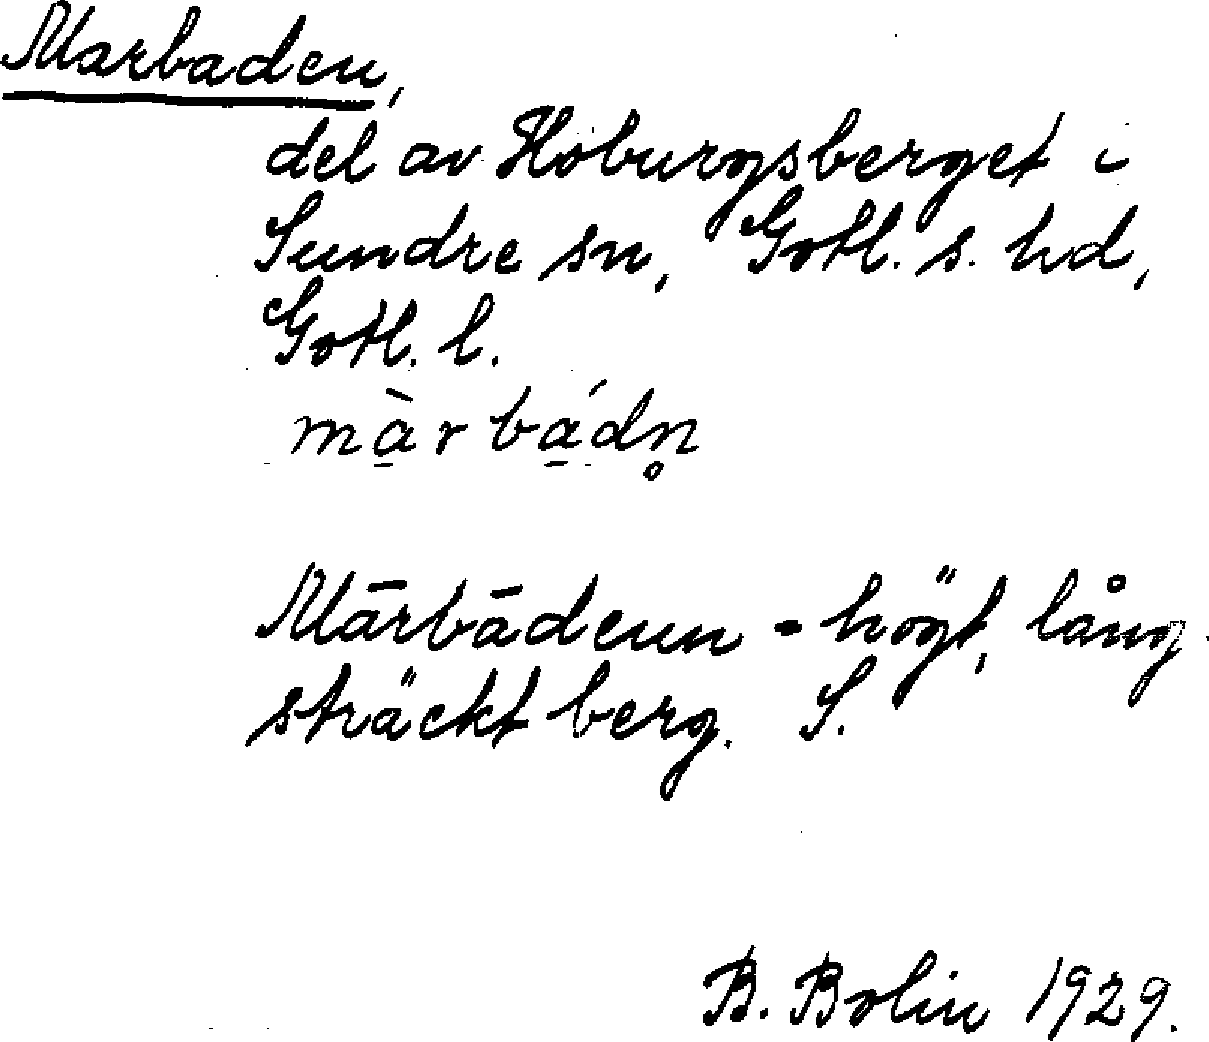 Marbaden,
del av Hoburgsberget i
Sundre sn, Gotl. s. hd,
Gotl. l.
mà̱rbá̱dn̥
Mārbādenn - högt, lång
sträckt berg. S.
B. Bolin 1929.